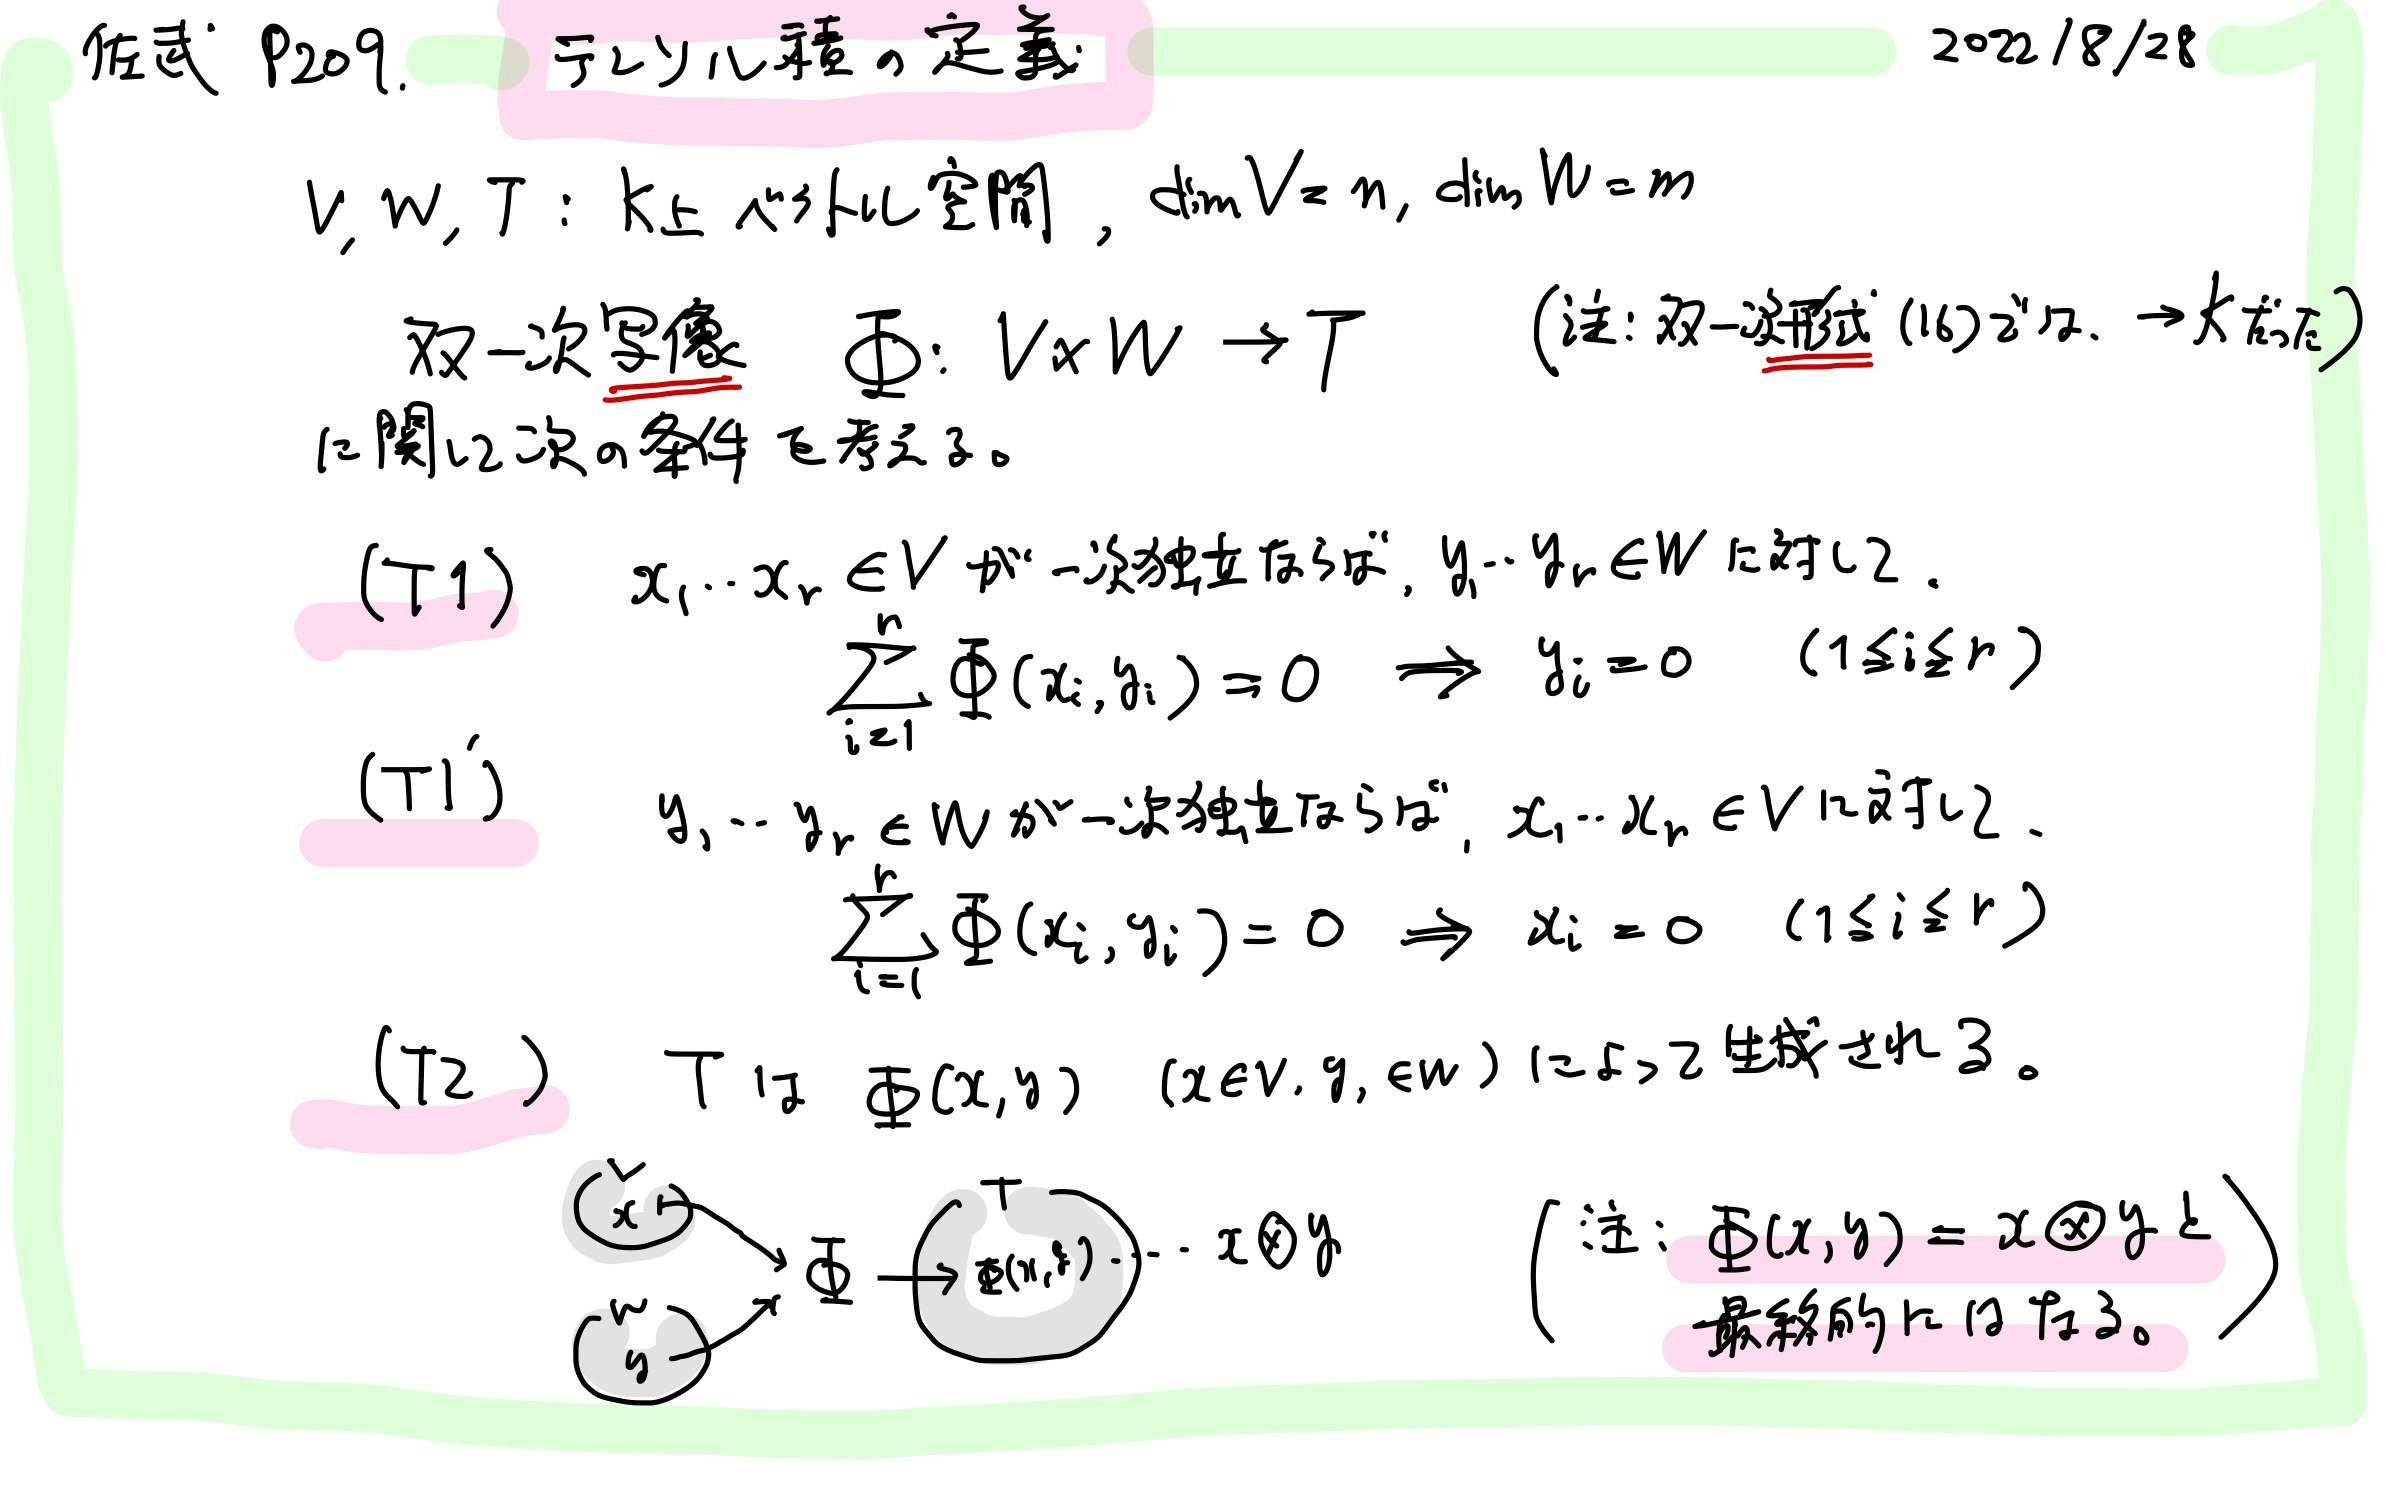 佐武 P209. テンソル積の定義 2022/8/28
V, W, T : K上ベクトル空間, dim V = n, dim W = m
双一次写像 Φ: V×W → T (注: 双一次形式 (16)では、→Kだった)
に関して次の条件を考える。
(T1) x₁‥xᵣ ∈V が一次独立ならば, y₁‥yᵣ ∈W に対して、
r
Σ Φ(xᵢ, yᵢ) = 0 ⇒ yᵢ = 0 (1≦i≦r)
i=1
(T1') y₁‥yᵣ ∈ W が一次独立ならば, x₁‥xᵣ ∈V に対して、
r
Σ Φ(xᵢ, yᵢ) = 0 ⇒ xᵢ = 0 (1≦i≦r)
i=1
(T2) T は Φ(x, y) (x∈V, y∈W) によって生成される。
V
x
T
Φ → Φ(x,y) ‥‥ x⊗y
W
y
(注: Φ(x, y) = x⊗y と
最終的にはなる。)